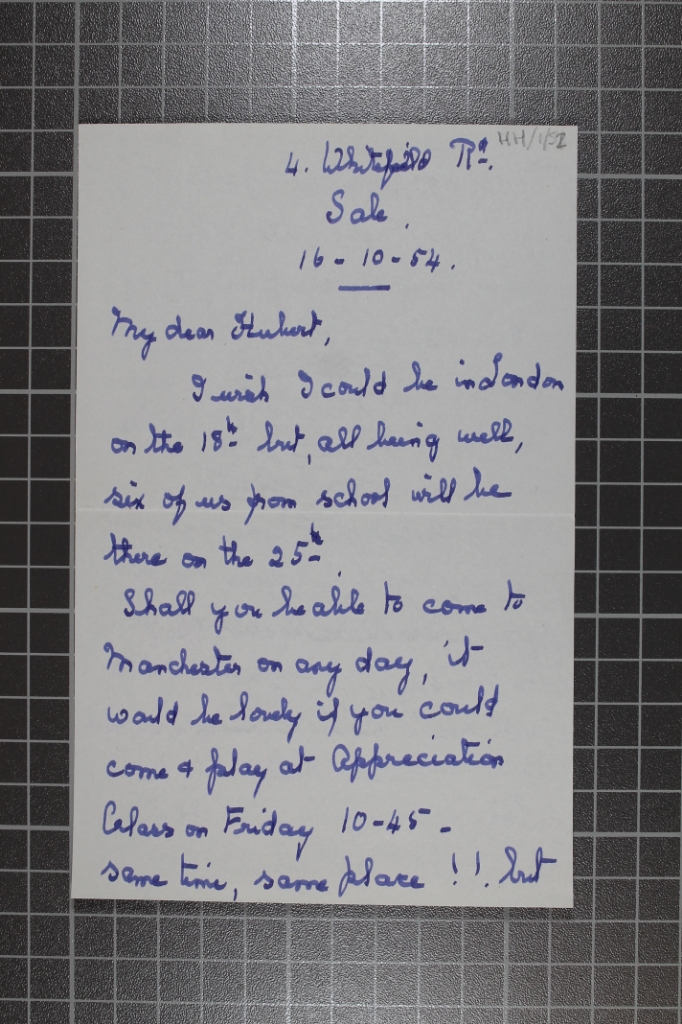 HH/1/52
4. Whitefield Rd.
Sale.
16-10-54.
My dear Hubert,
I wish I could be in London
on the 18th but, all being well,
six of us from school will be
there on the 25th.
Shall you be able to come to
Manchester on any day, it
would be lovely if you could
come & play at Appreciation
Class on Friday 10-45 -
same time, same place !!. but